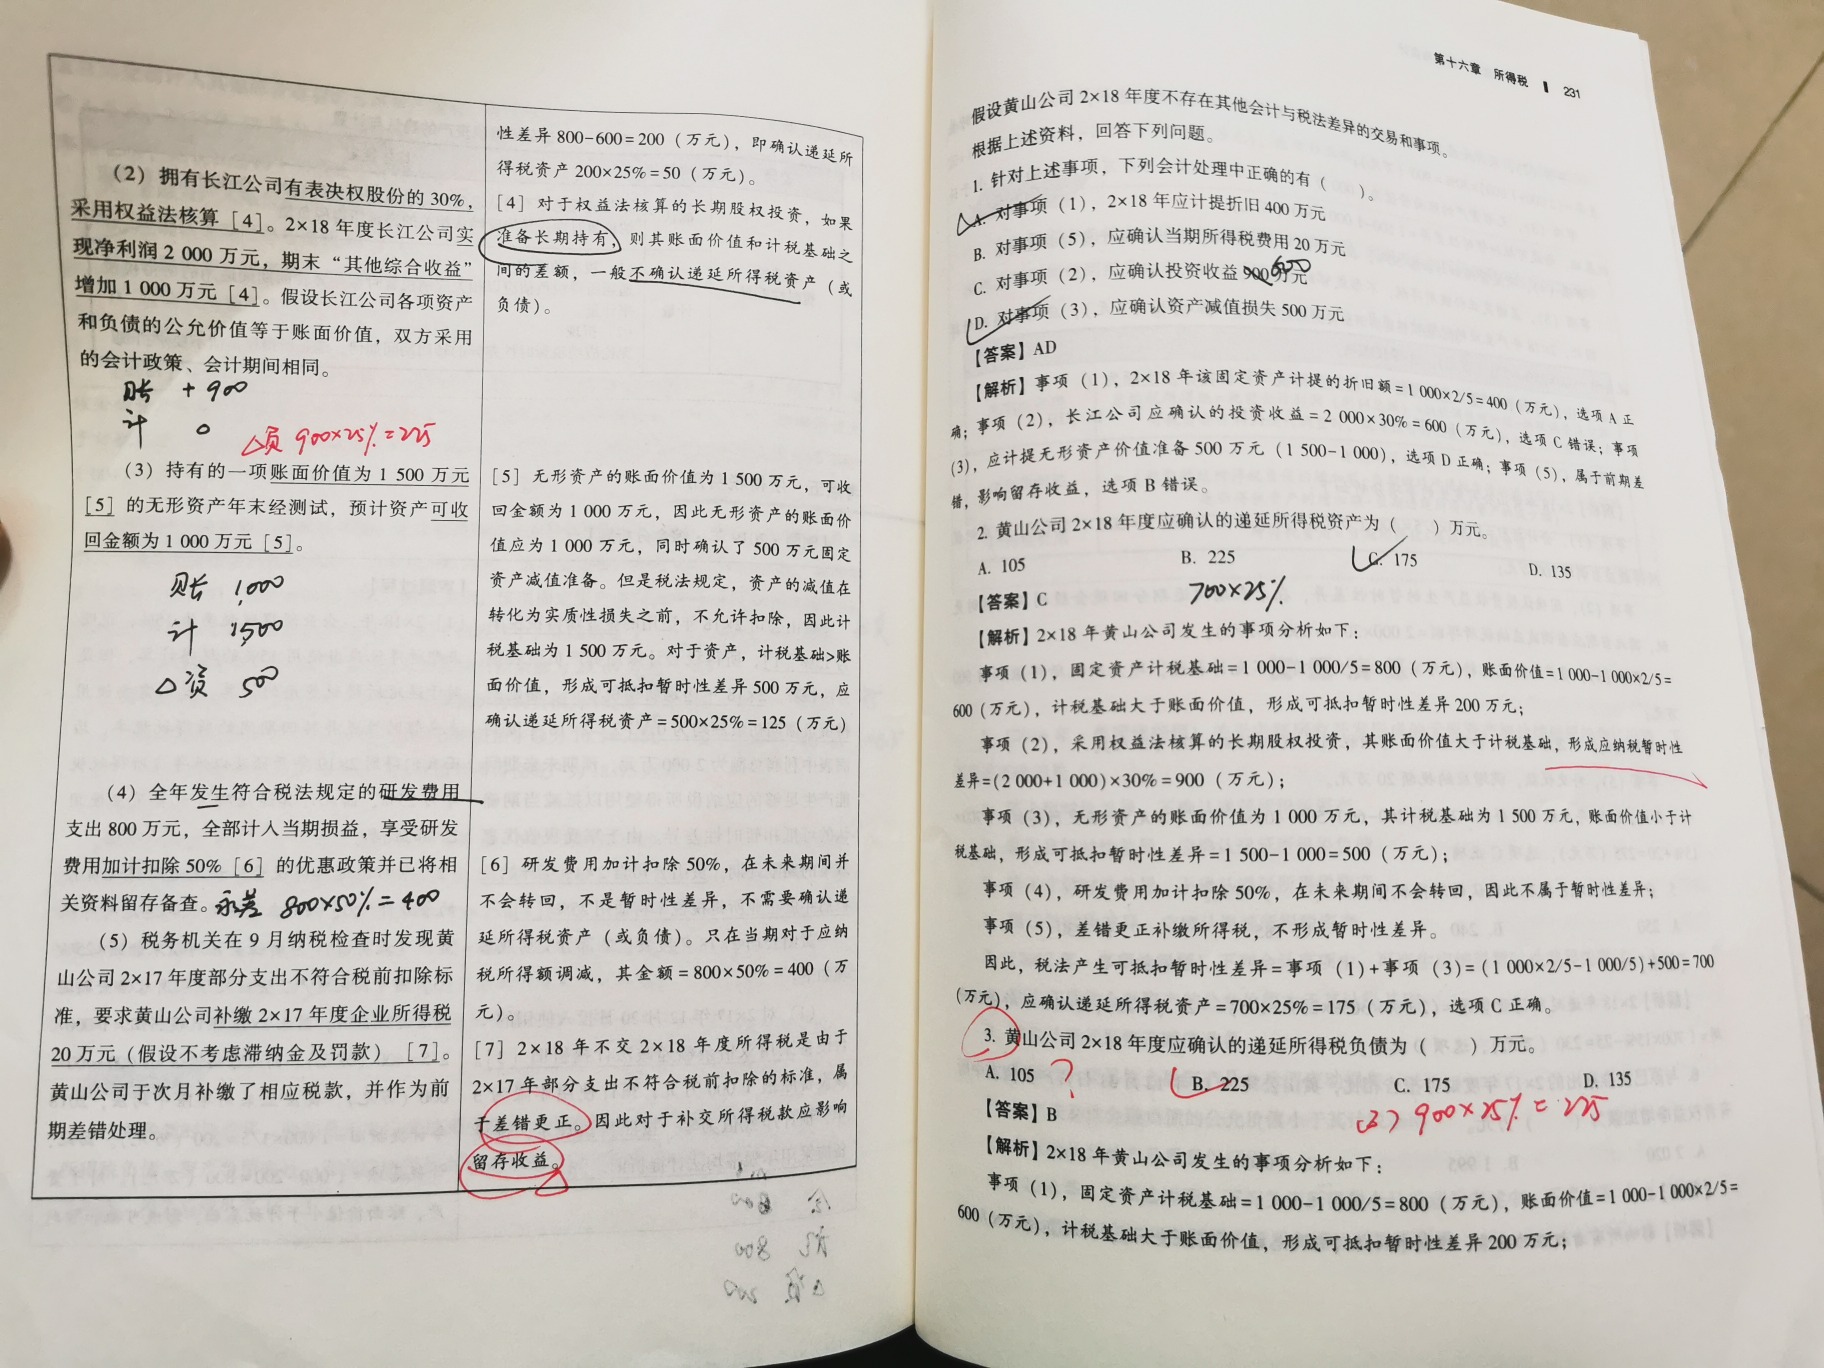 (2) 拥有长江公司有表决权股份的 30%,
采用权益法核算 [4]。2×18 年度长江公司实
现净利润 2 000 万元，期末“其他综合收益”
增加 1 000 万元 [4]。假设长江公司各项资产
和负债的公允价值等于账面价值，双方采用
的会计政策、会计期间相同。
账 +900
计 0
△负 900×25%=225
(3) 持有的一项账面价值为 1 500 万元
[5] 的无形资产年末经测试，预计资产可收
回金额为 1 000 万元 [5]。
账 1,000
计 1,500
△资 500
(4) 全年发生符合税法规定的研发费用
支出 800 万元，全部计入当期损益，享受研发
费用加计扣除 50% [6] 的优惠政策并已将相
关资料留存备查。永差 800×50%=400
(5) 税务机关在 9 月纳税检查时发现黄
山公司 2×17 年度部分支出不符合税前扣除标
准，要求黄山公司补缴 2×17 年度企业所得税
20 万元（假设不考虑滞纳金及罚款） [7]。
黄山公司于次月补缴了相应税款，并作为前
期差错处理。
性差异 800-600=200（万元），即确认递延所
得税资产 200×25%=50（万元）。
[4] 对于权益法核算的长期股权投资，如果
准备长期持有，则其账面价值和计税基础之
间的差额，一般不确认递延所得税资产（或
负债）。
[5] 无形资产的账面价值为 1 500 万元，可收
回金额为 1 000 万元，因此无形资产的账面价
值应为 1 000 万元，同时确认了 500 万元固定
资产减值准备。但是税法规定，资产的减值在
转化为实质性损失之前，不允许扣除，因此计
税基础为 1 500 万元。对于资产，计税基础>账
面价值，形成可抵扣暂时性差异 500 万元，应
确认递延所得税资产=500×25%=125（万元）
[6] 研发费用加计扣除 50%，在未来期间并
不会转回，不是暂时性差异，不需要确认递
延所得税资产（或负债）。只在当期对于应纳
税所得额调减，其金额=800×50%=400（万
元）。
[7] 2×18 年不交 2×18 年度所得税是由于
2×17 年部分支出不符合税前扣除的标准，属
于差错更正。因此对于补交所得税款应影响
留存收益。
第十六章 所得税 231
假设黄山公司 2×18 年度不存在其他会计与税法差异的交易和事项。
根据上述资料，回答下列问题。
1. 针对上述事项，下列会计处理中正确的有（ ）。
A. 对事项（1），2×18 年应计提折旧 400 万元
B. 对事项（5），应确认当期所得税费用 20 万元
C. 对事项（2），应确认投资收益 900 万元 600
D. 对事项（3），应确认资产减值损失 500 万元
【答案】AD
【解析】事项（1），2×18 年该固定资产计提的折旧额=1 000×2/5=400（万元），选项 A 正
确；事项（2），长江公司应确认的投资收益=2 000×30%=600（万元），选项 C 错误；事项
（3），应计提无形资产价值准备 500 万元（1 500-1 000），选项 D 正确；事项（5），属于前期差
错，影响留存收益，选项 B 错误。
2. 黄山公司 2×18 年度应确认的递延所得税资产为（ ）万元。
A. 105 B. 225 C. 175 D. 135
700×25%
【答案】C
【解析】2×18 年黄山公司发生的事项分析如下：
事项（1），固定资产计税基础=1 000-1 000/5=800（万元），账面价值=1 000-1 000×2/5=
600（万元），计税基础大于账面价值，形成可抵扣暂时性差异 200 万元；
事项（2），采用权益法核算的长期股权投资，其账面价值大于计税基础，形成应纳税暂时性
差异=(2 000+1 000)×30%=900（万元）；
事项（3），无形资产的账面价值为 1 000 万元，其计税基础为 1 500 万元，账面价值小于计
税基础，形成可抵扣暂时性差异=1 500-1 000=500（万元）；
事项（4），研发费用加计扣除 50%，在未来期间不会转回，因此不属于暂时性差异；
事项（5），差错更正补缴所得税，不形成暂时性差异。
因此，税法产生可抵扣暂时性差异=事项（1）+事项（3）=(1 000×2/5-1 000/5)+500=700
（万元），应确认递延所得税资产=700×25%=175（万元），选项 C 正确。
3. 黄山公司 2×18 年度应确认的递延所得税负债为（ ）万元。
A. 105 ? B. 225 C. 175 D. 135
(3) 900×25%=225
【答案】B
【解析】2×18 年黄山公司发生的事项分析如下：
事项（1），固定资产计税基础=1 000-1 000/5=800（万元），账面价值=1 000-1 000×2/5=
600（万元），计税基础大于账面价值，形成可抵扣暂时性差异 200 万元；